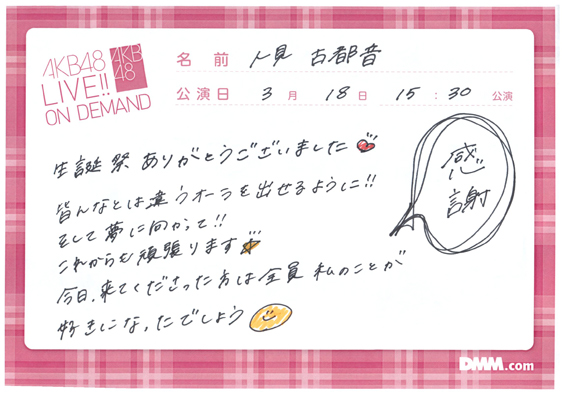 AKB48
LIVE!!
ON DEMAND
AKB
48
名前 人見 古都音
公演日 3月 18日 15:30 公演
生誕祭 ありがとうございました
皆んなとは違うオーラを出せるように!!
そして夢に向かって!!
これからも頑張ります
今日、来てくださった方は全員 私のことが
好きになったでしょう
感
謝
DMM.com